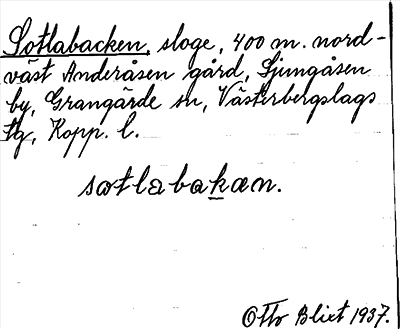 Sotlabacken, sloge, 400 m. nord-
väst Anderåsen gård, Ljungåsen
by, Grangärde sn, Västerbergslags
tg, Kopp. l.
sotlabakæn.
Otto Blixt 1937.